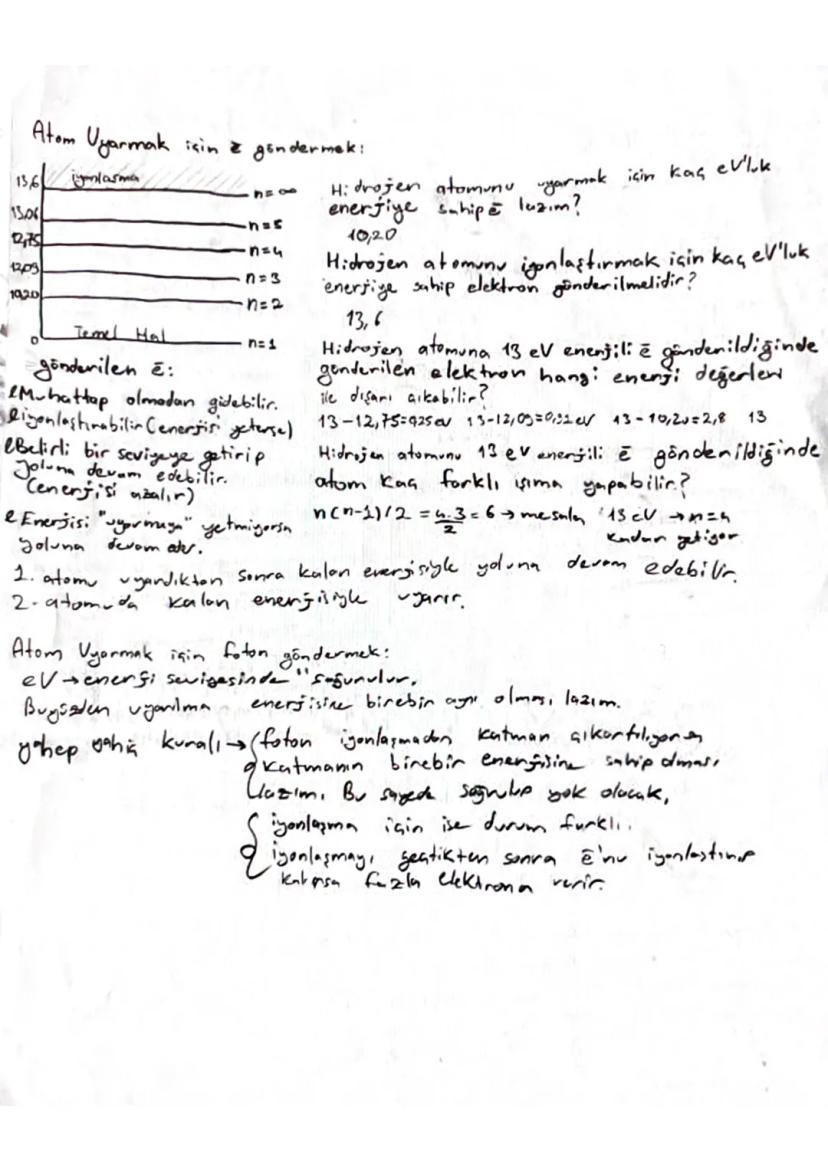 Atom Uyarmak için ē göndermek:
13,6 iyonlaşma n=∞
13,06 n=5
12,75 n=4
12,09 n=3
10,20 n=2
0 Temel Hal n=1
gönderilen ē:
Muhattap olmadan gidebilir.
iyonlaştırabilir (enerjisi yeterse)
Belirli bir seviyeye getirip
yoluna devam edebilir.
(enerjisi azalır)
Enerjisi "uyarmaya" yetmiyorsa
yoluna devam eder.
Hidrojen atomunu uyarmak için kaç eV'luk
enerjiye sahip ē lazım?
10,20
Hidrojen atomunu iyonlaştırmak için kaç eV'luk
enerjiye sahip elektron gönderilmelidir?
13,6
Hidrojen atomuna 13 eV enerjili ē gönderildiğinde
gönderilen elektron hangi enerji değerleri
ile dışarı çıkabilir?
13-12,75=0,25 eV 13-12,09=0,91 eV 13-10,20=2,8 13
Hidrojen atomunu 13 eV enerjili ē gönderildiğinde
atom kaç farklı ışıma yapabilir?
n(n-1)/2 = 4.3/2 = 6 → mesela 13 eV → n=4
kadar yetiyor
1. atomu uyardıktan sonra kalan enerjisiyle yoluna devam edebilir.
2. atomu da kalan enerjisiyle uyarır.
Atom Uyarmak için foton göndermek:
eV → enerji seviyesinde "soğurulur.
Bu yüzden uyarılma enerjisine birebir aynı olması lazım.
ya hep ya hiç kuralı → (foton iyonlaşmadan katman çıkartılıyorsa
katmanın birebir enerjisine sahip olması
lazım. Bu sayede soğrulup yok olacak,
iyonlaşma için ise durum farklı.
iyonlaşmayı geçtikten sonra ē'nu iyonlaştırıp
kalırsa fazla elektrona verir.